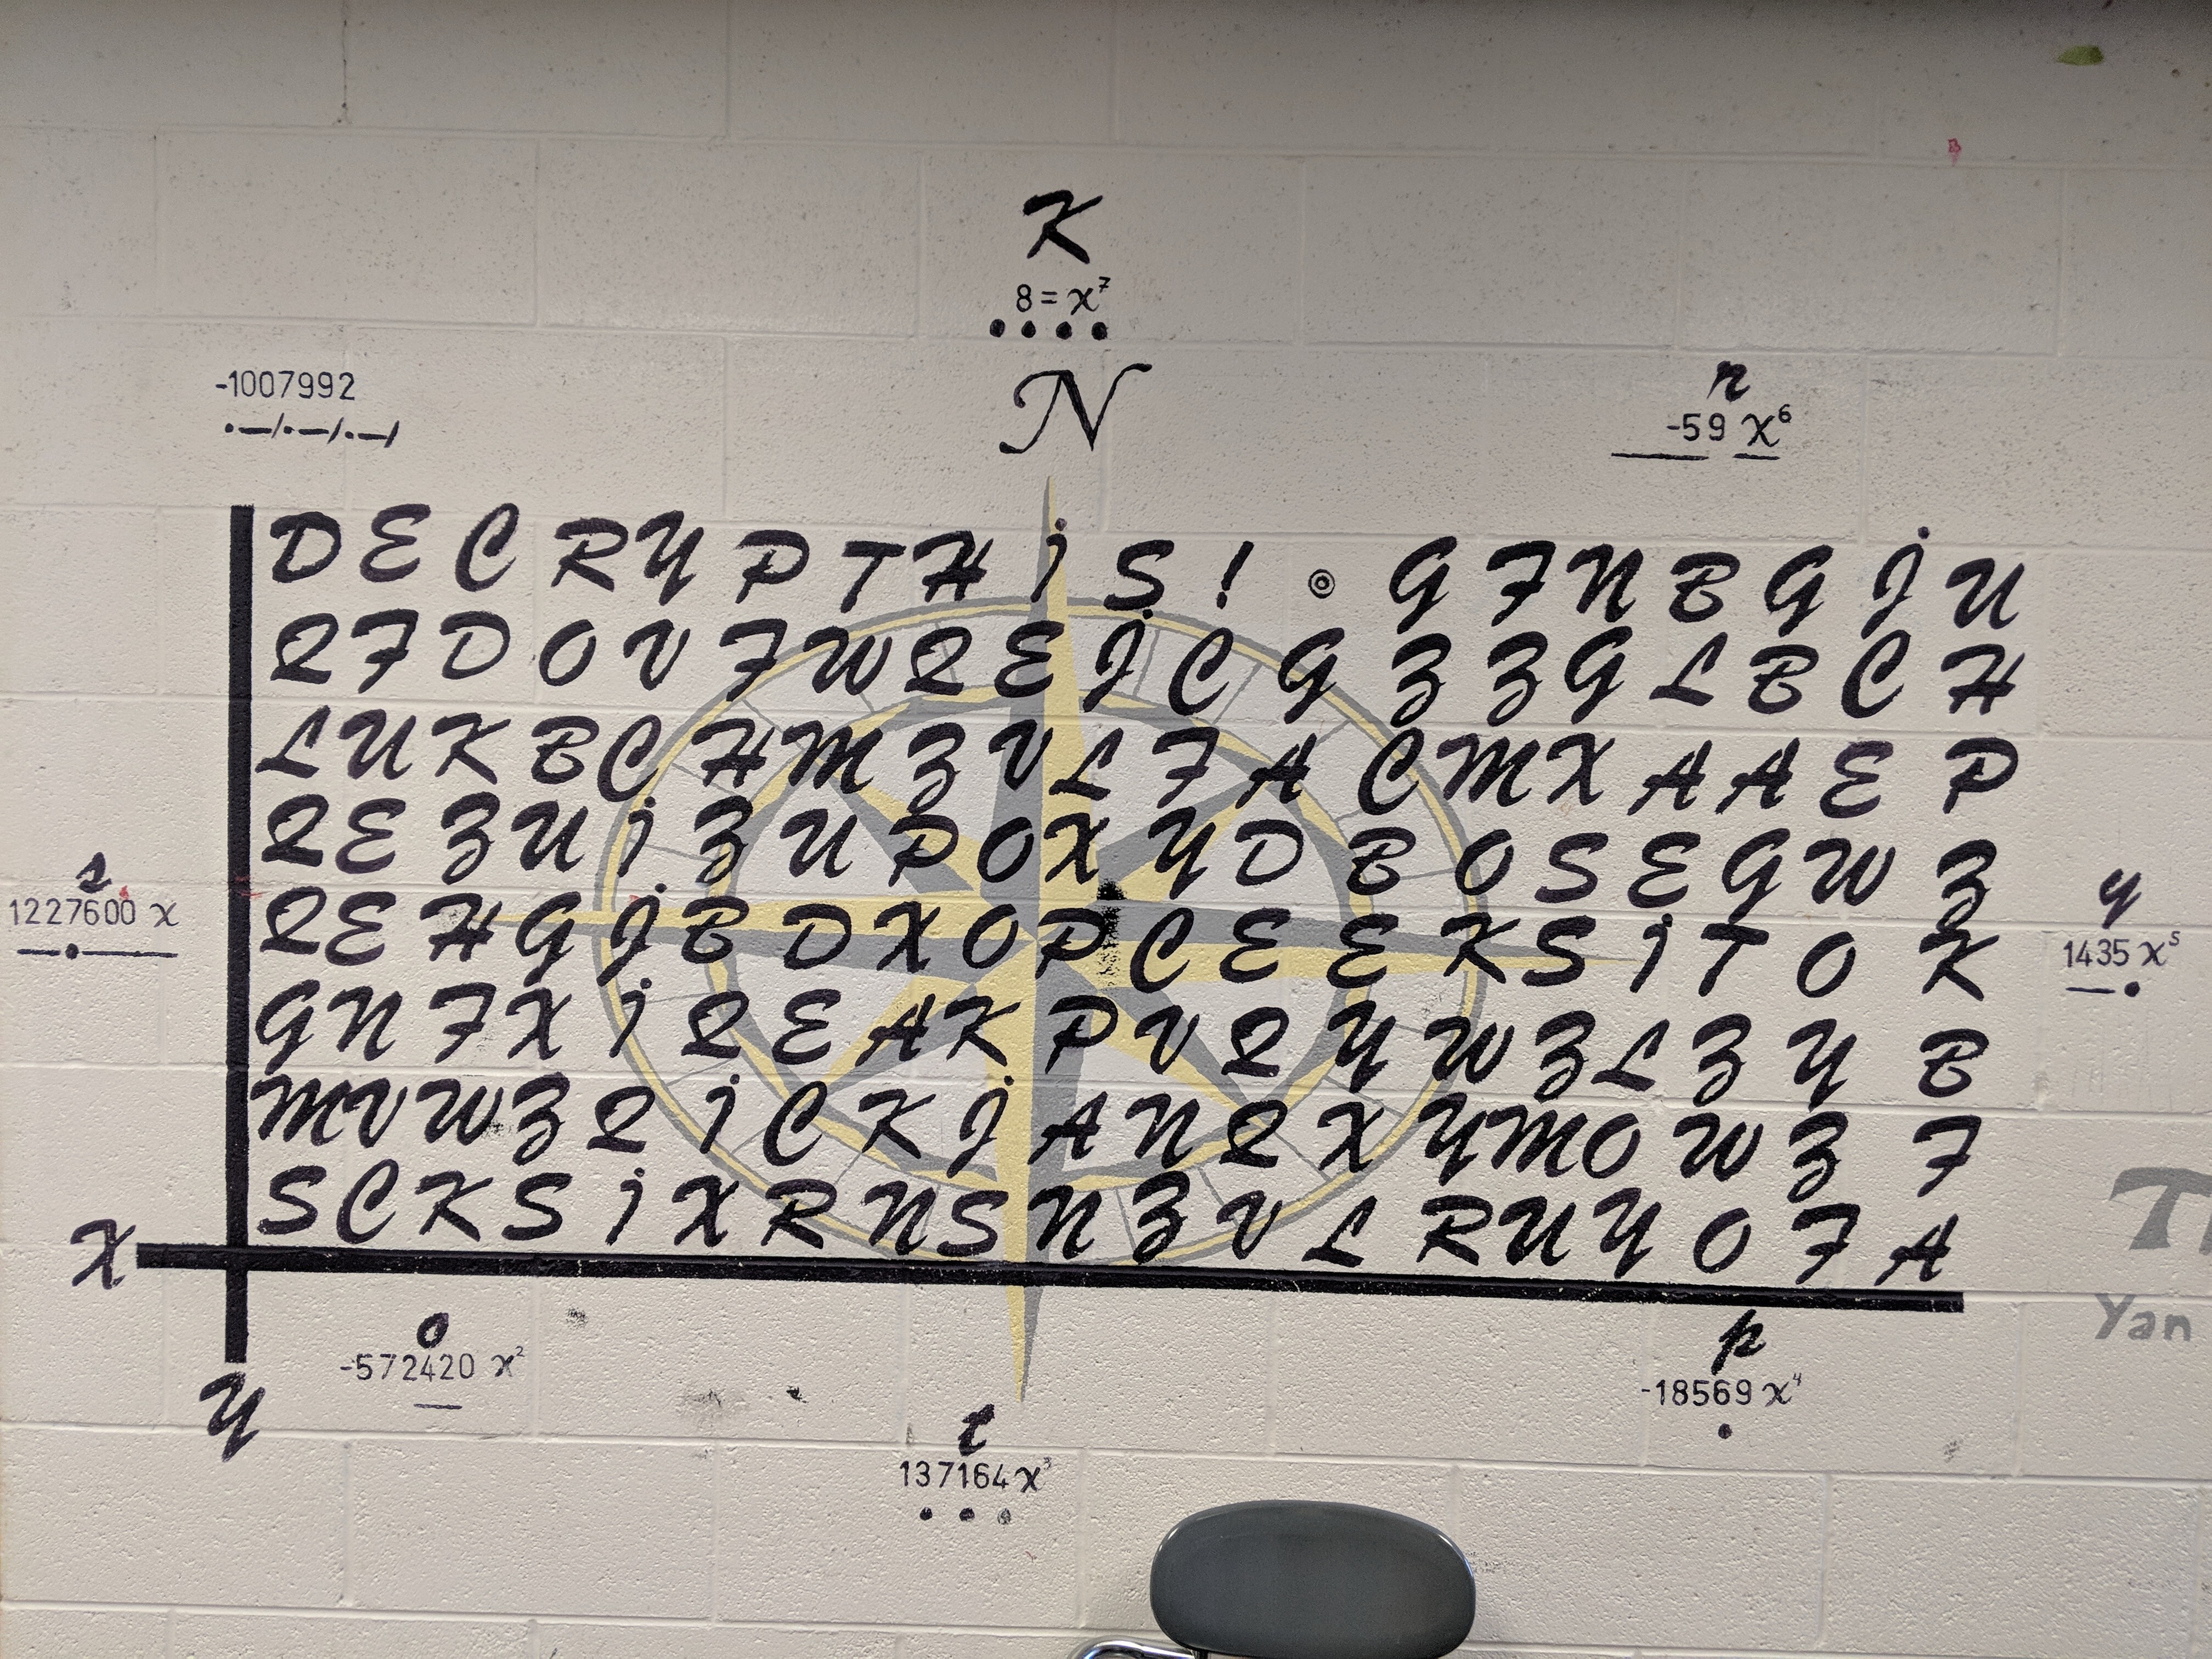 K
8 = x⁷
• • • •
N
-1007992
•—/•—/•—/
r
-59 x⁶
— —
DECRYPTHIS! ⊚ GFNBGJU
QFDOVFWQEJCGZZGLBCH
LUKBCHMZVLFACMXAAEP
QEZUIZUPOXYDBOSEGWZ
QEHGJBDXOPCEEKSITOK
GNFXIQEAKPVQYWZLZYB
MVWZQICKJANQXYMOWZF
SCKSIXRNSNZVLRUYOFA
s
1227600 x
—•—
y
1435 x⁵
—•
X
Y
o
-572420 x²
—
t
137164 x³
• • •
p
-18569 x⁴
•
Yan